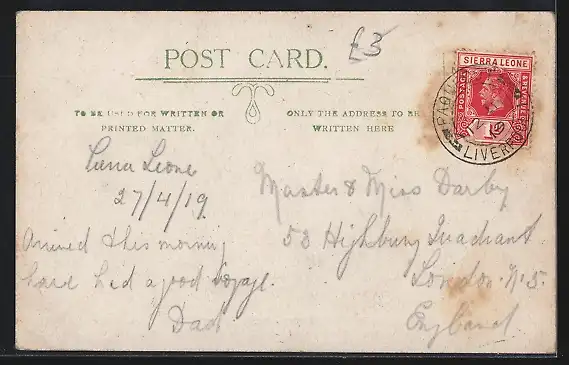 £3
POST CARD.
SIERRA LEONE
POSTAGE
LIVERPOOL
TO BE USED FOR WRITTEN OR
PRINTED MATTER.
ONLY THE ADDRESS TO BE
WRITTEN HERE
Sierra Leone
27/4/19
Arrived this morning
have had a good voyage.
Dad
Master & Miss Darby
53 Highbury Quadrant
London. N. 5.
England.